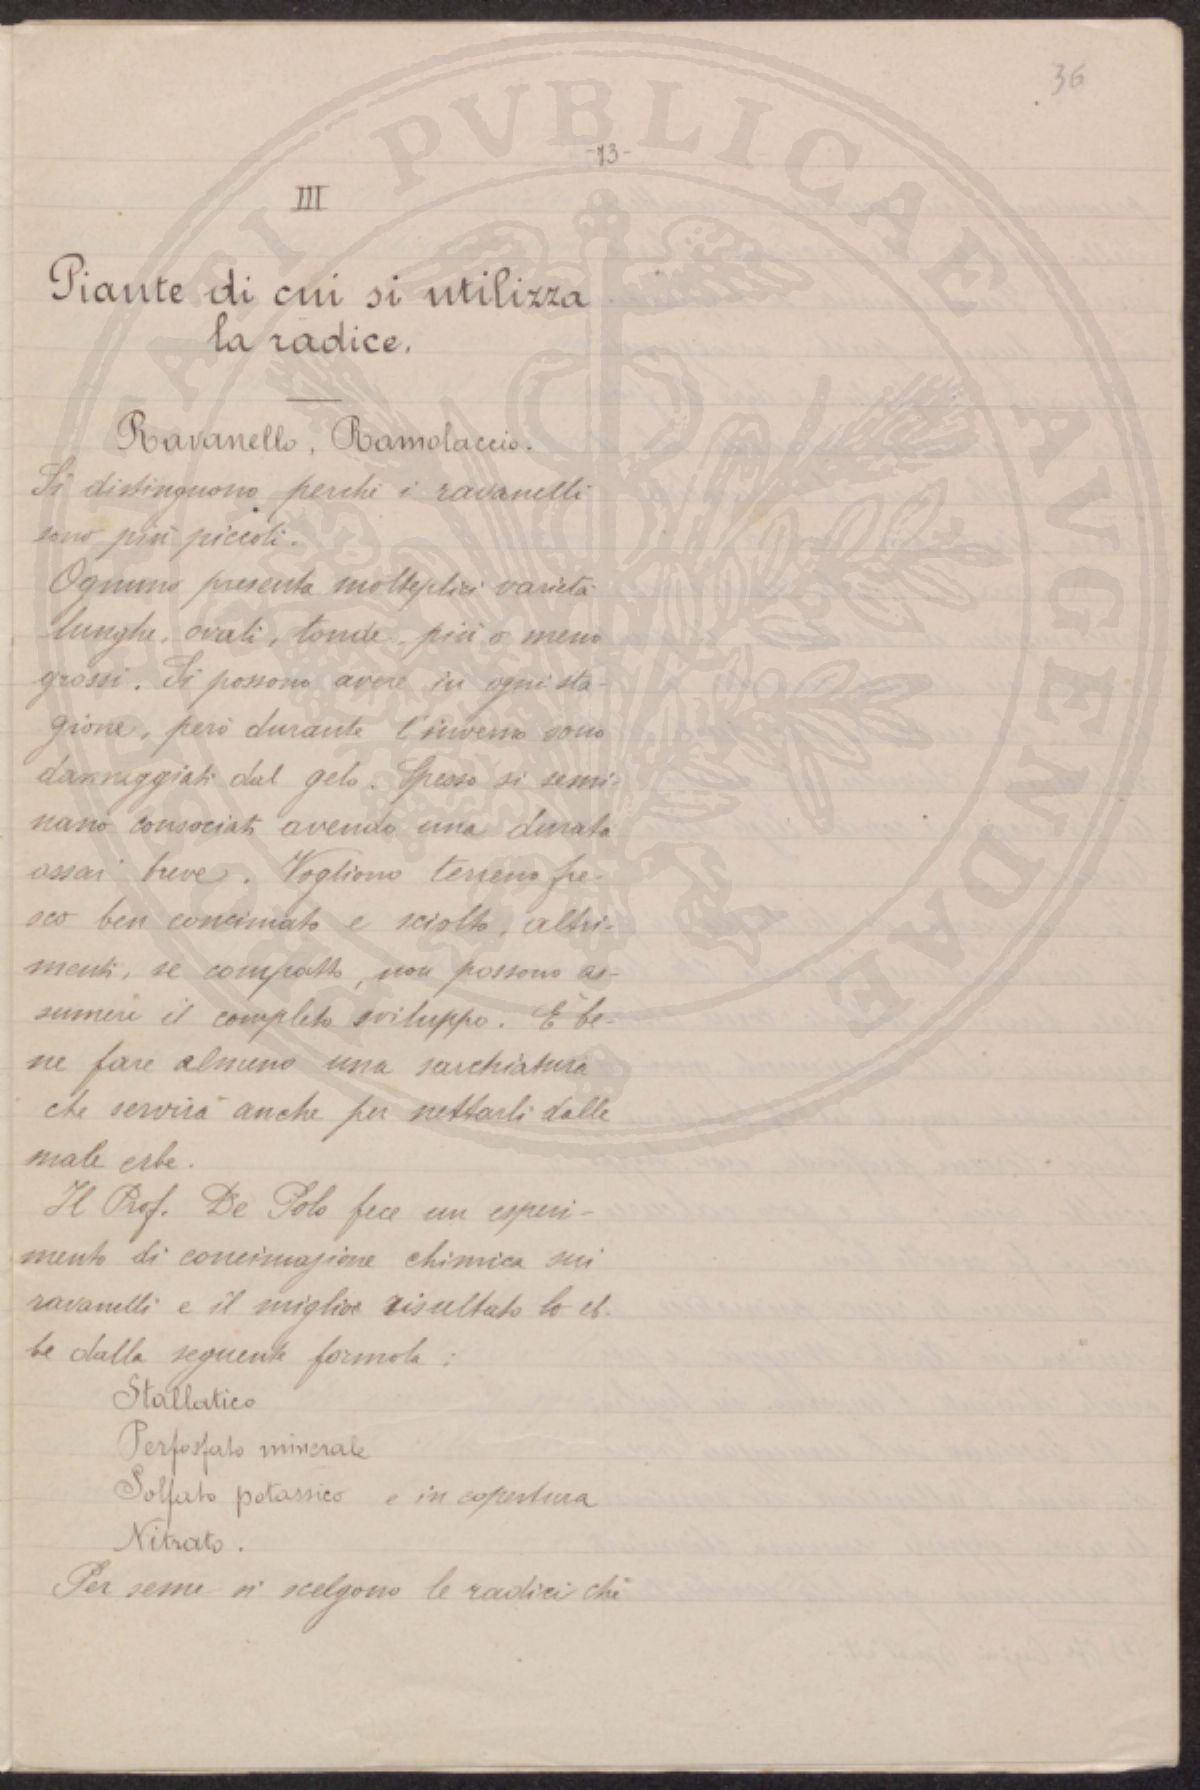 36
-73-
III
Piante di cui si utilizza
la radice.
Ravanello, Ramolaccio.
Si distinguono perchè i ravanelli
sono più piccoli.
Ognuno presenta molteplici varietà
lunghe, ovali, tonde, più o meno
grossi. Si possono avere in ogni sta-
gione, però durante l'inverno sono
danneggiati dal gelo. Spesso si semi-
nano consociati avendo una durata
assai breve. Vogliono terreno fre-
sco ben concimato e sciolto, altri-
menti, se compatto, non possono as-
sumere il completo sviluppo. È be-
ne fare almeno una sarchiatura
che servirà anche per nettarli dalle
male erbe.
Il Prof. De Polo fece un esperi-
mento di concimazione chimica sui
ravanelli e il miglior risultato lo eb-
be dalla seguente formola:
Stallatico
Perfosfato minerale
Solfato potassico e in copertura
Nitrato.
Per seme si scelgono le radici che
PUBLICAE AUGENDAE